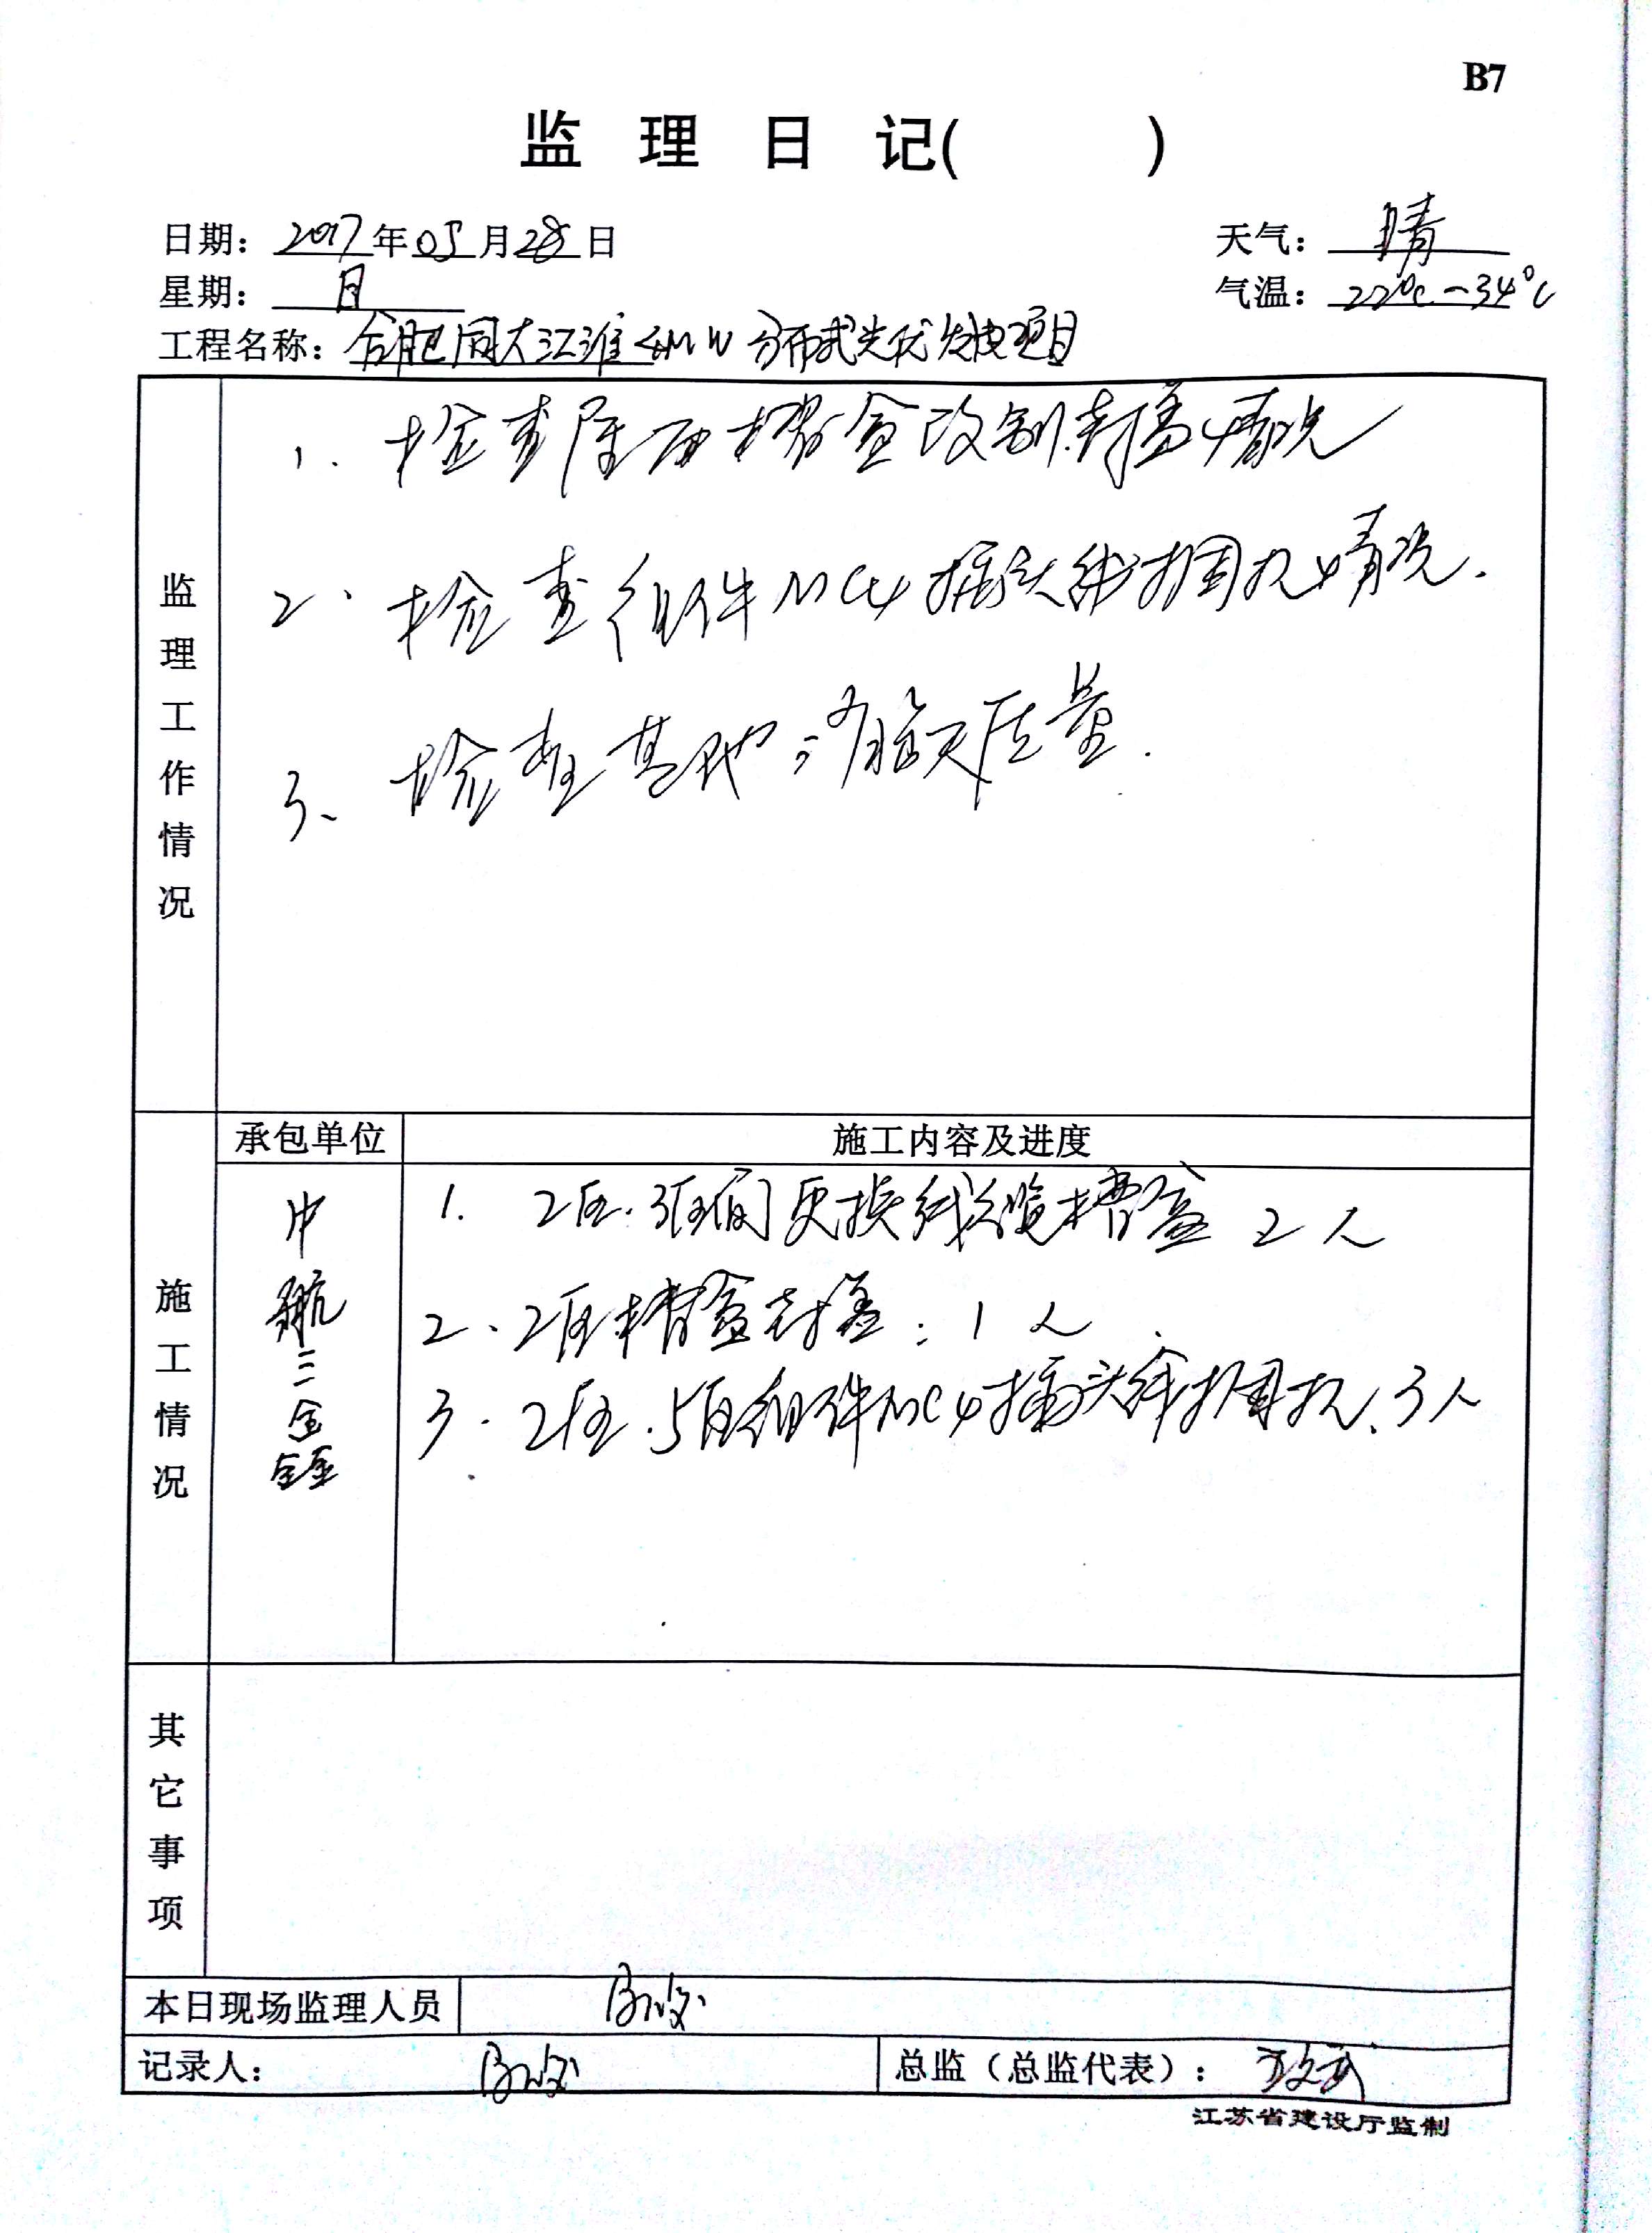 B7
监 理 日 记( )
日期：2017年05月28日 天气：晴
星期：日 气温：22℃—34℃
工程名称：合肥同大江淮 MW分布式光伏发电项目
监理工作情况
1. 检查屋面槽盒改制.封堵情况
2. 检查组件MC4插头线捆扎情况.
3、检查基地 质量.
承包单位 施工内容及进度
施工情况
中航三鑫
1. 2区.3区间更换线缆槽盒 2人
2、2区槽盒封盖：1人
3. 2区.5区组件MC4插头线捆扎.3人
其它事项
本日现场监理人员
记录人： 总监（总监代表）：
江苏省建设厅监制